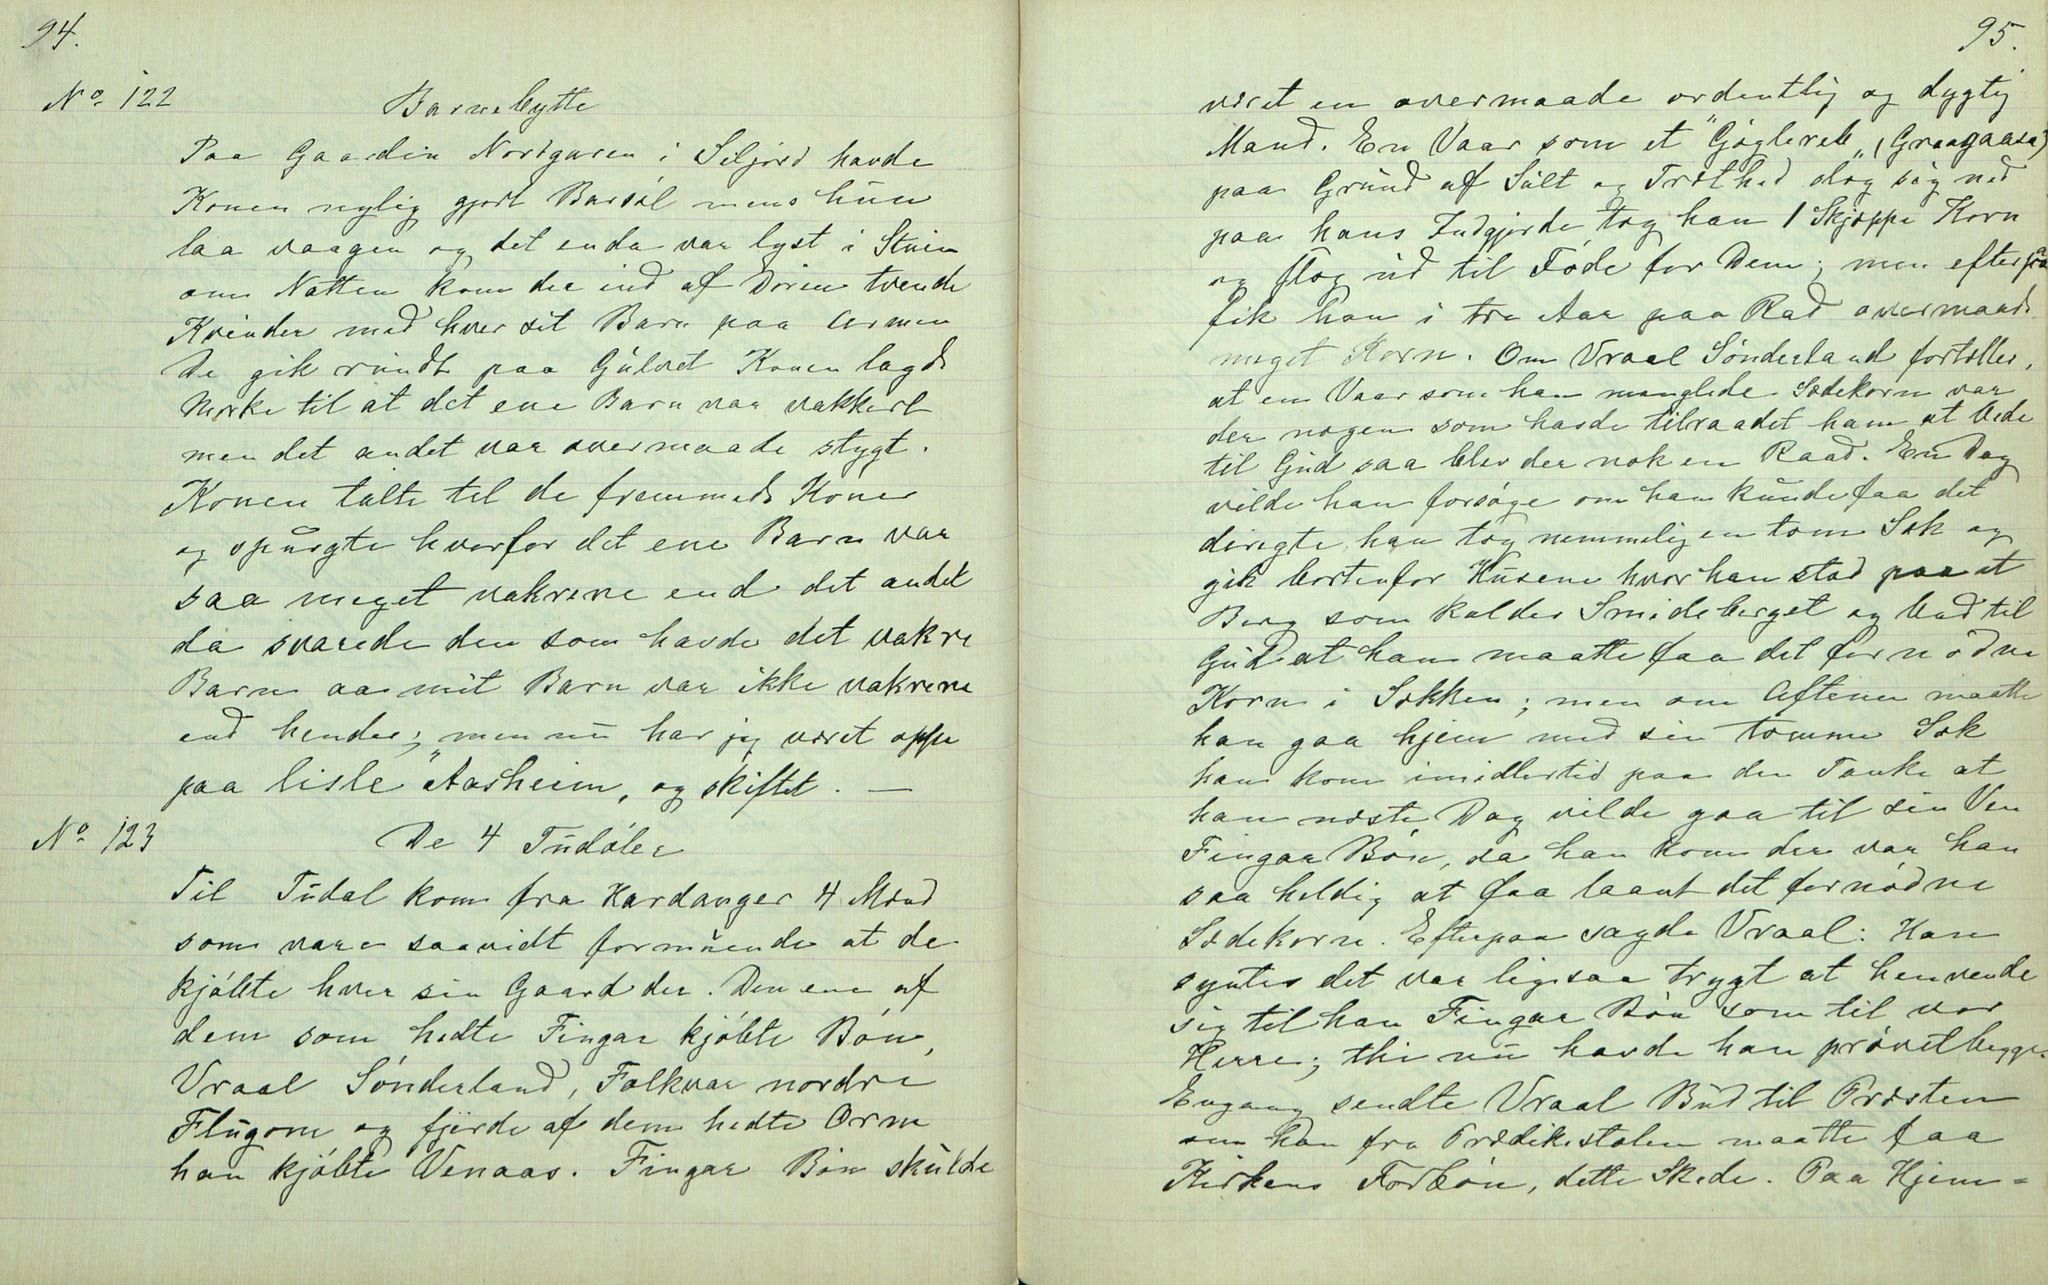 94.
No 122 Barnebytte
Paa Gaarden Nordgaren i Seljord havde
Konen nylig gjort Barsøl mens hun
laa vaagen og det enda var lyst i Stuen
om Natten kom der ind af Døren tvende
Kvinder med hver sit Barn paa Armen
De gik rundt paa Gulvet Konen lagde
Merke til at det ene Barn var vakkert
men det andet var overmaade stygt.
Konen talte til de fremmede Koner
og spurgte hvorfor det ene Barn var
saa meget vakrere end det andet
da svarede den som havde det vakre
Barn aa mit Barn var ikke vakrere
end hendes; men nu har jeg været oppe
paa lisle "Aasheim„ og skiftet. —
No 123 De 4 Tudøler
Til Tudal kom fra Hardanger 4 Mænd
som vare saavidt formuende at de
kjøbte hver sin Gaard der. Den ene af
dem som hedte Fingar kjøbte Bøn,
Vraal Sønderland, Falkvar nordre
Flugom og fjerde af dem hedte Orm
han kjøbte Venaas. Fingar Bøn skulde
95.
været en overmaade ordentlig og dygtig
Mand. En Vaar som et "Gjoglerek„ (Graagaasa)
paa Grund af Sult og Træthed slog sig ned
paa hans Indgjerde tog han 1 Skjæppe Korn
og slog ud til Føde for Dem; men efter paa
fik han i tre Aar paa Rad overmaade
meget Korn. Om Vraal Sønderland fortælles,
at en Vaar som han manglede Sædekorn var
der nogen som havde tilraadet ham at bede
til Gud saa blev der nok en Raad. En Dag
vilde han forsøge om han kunde faa det
dirigte, han tog nemmelig en tom Sæk og
gik bortenfor Husene hvor han stod paa et
Berg som kaldes Smideberget og bad til
Gud at han maatte faa det fornødne
Korn i Sækken; men om Aftenen maatte
han gaa hjem med sin tomme Sæk
han kom imidlertid paa den Tanke at
han næste Dag vilde gaa til sin Ven
Fingar Bøn, da han kom der var han
saa heldig at faa laant det fornødne
Sædekorn. Efterpaa sagde Vraal: Han
syntes det var ligesaa trygt at henvende
sig til han Fingar Bøn som til vor
Herre; thi nu havde han prøvet begge.
Engang sendte Vraal Bud til Præsten
om han fra Prædikestolen maatte faa
Kirkens Forbøn, dette Skede. Paa Hjem=